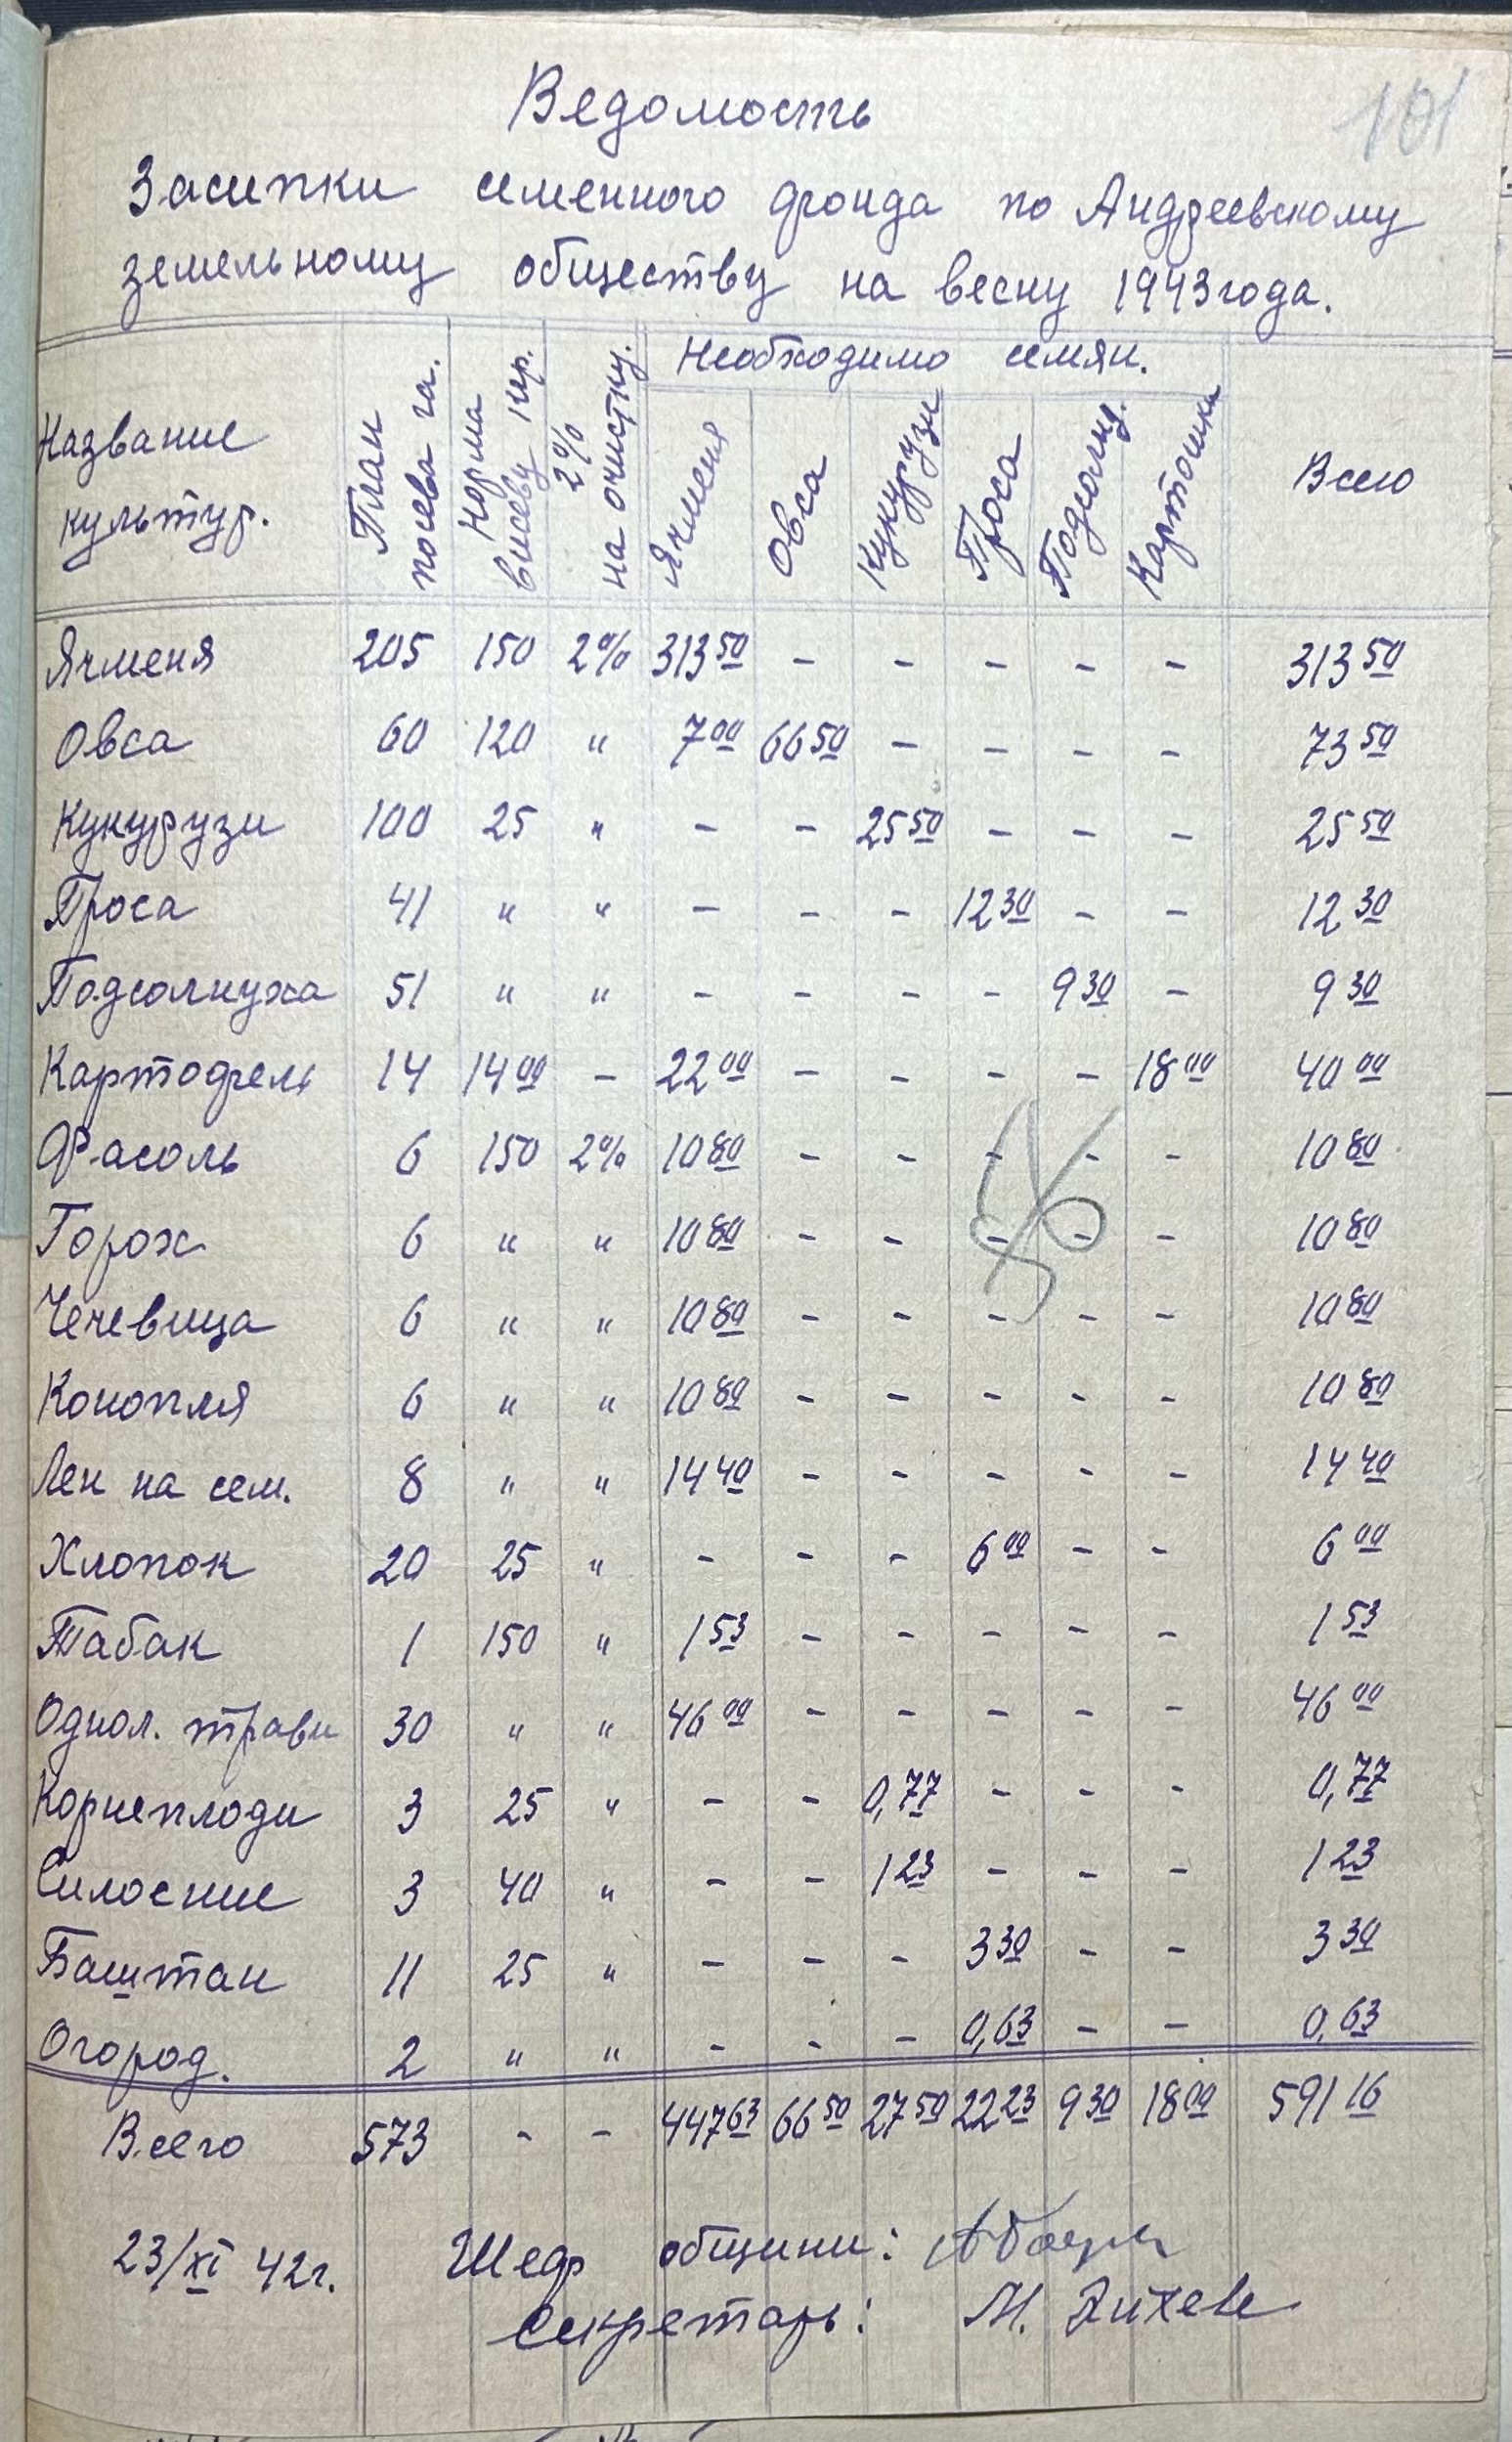 101
Ведомость
Засипки семенного фонда по Андреевскому
земельному обществу на весну 1943 года.
Название культур. План посева га. Норма висеву кгр. 2% на очистку. Необходимо семян. Всего
Ячменя Овса Кукурузи Проса Подсолнух. Картошки
Ячменя 205 150 2% 313 50 - - - - - 313 50
Овса 60 120 " 7 00 66 50 - - - - 73 50
Кукурузи 100 25 " - - 25 50 - - - 25 50
Проса 41 " " - - - 12 30 - - 12 30
Подсолнуха 51 " " - - - - 9 30 - 9 30
Картофель 14 14 00 - 22 00 - - - - 18 00 40 00
Фасоль 6 150 2% 10 80 - - - - - 10 80
Горох 6 " " 10 80 - - - - - 10 80
Чечевица 6 " " 10 80 - - - - - 10 80
Конопля 6 " " 10 80 - - - - - 10 80
Лен на сем. 8 " " 14 40 - - - - - 14 40
Хлопок 20 25 " - - - 6 00 - - 6 00
Табак 1 150 " 1 53 - - - - - 1 53
Однол. трави 30 " " 46 00 - - - - - 46 00
Корнеплоди 3 25 " - - 0,77 - - - 0,77
Силосние 3 40 " - - 1 23 - - - 1 23
Баштан 11 25 " - - - 3 30 - - 3 30
Огород. 2 " " - - - 0,63 - - 0,63
Всего 573 - - 447 63 66 50 27 50 22 23 9 30 18 00 591 16
23/XI 42г. Шеф общини:
Секретарь: М.